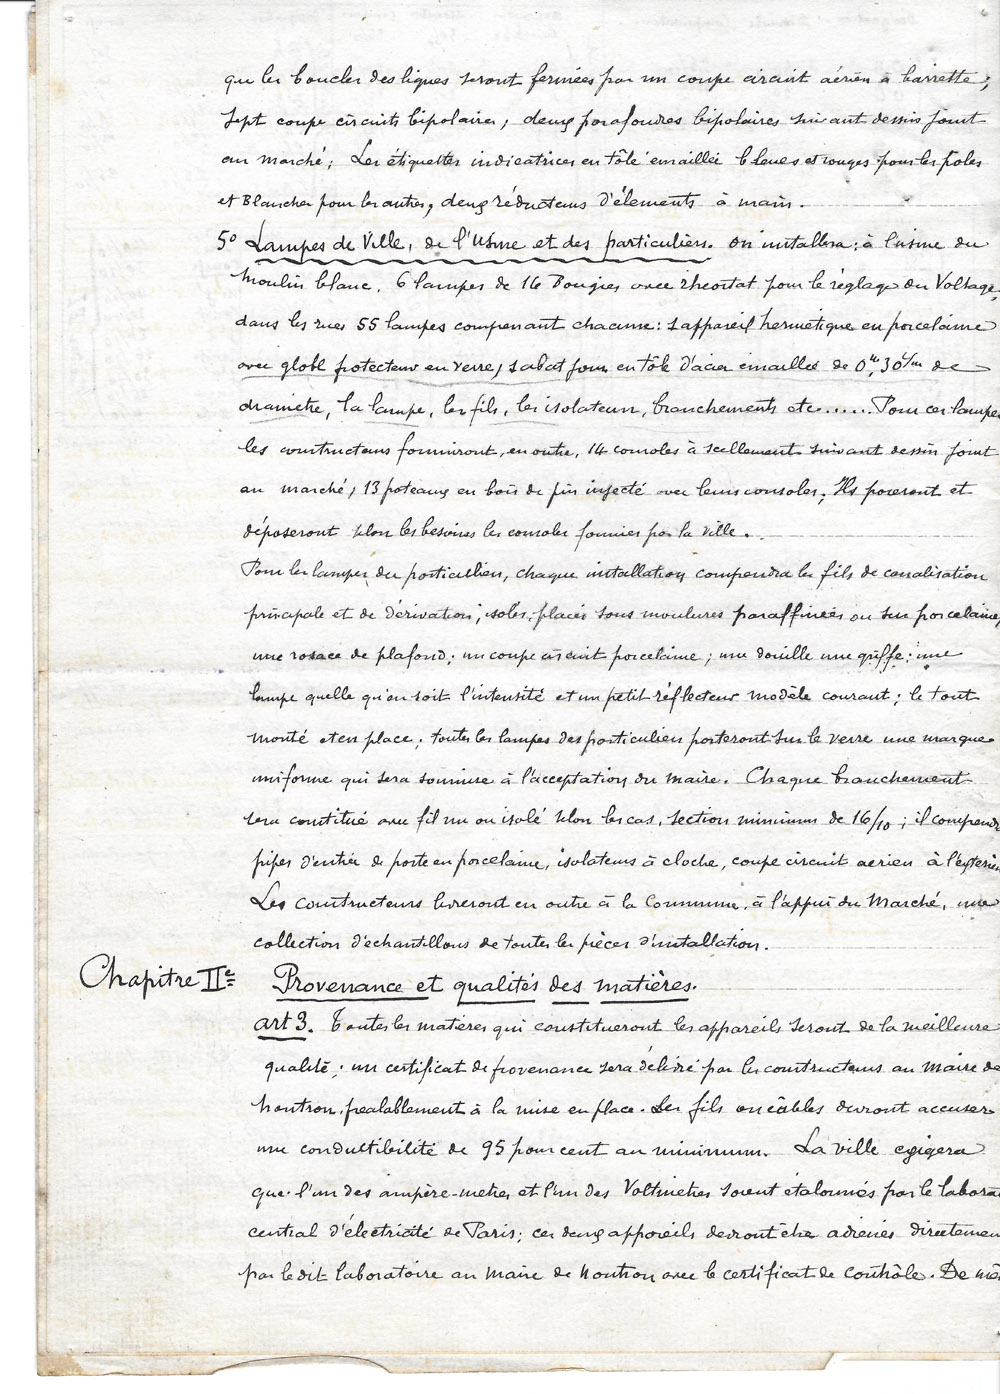 que les boucles des lignes seront fermées par un coupe circuit aérien à barrette ;
sept coupe circuits bipolaires, deux parafoudres bipolaires suivant dessin joint
au marché ; Les étiquettes indicatrices en tôle émaillée bleues et rouges pour les pôles
et Blanches pour les autres, deux réducteurs d'éléments à main.
5° Lampes de Ville, de l'Usine et des particuliers. On installera : à l'usine du
Moulin blanc, 6 lampes de 16 Bougies avec rhéostat pour le réglage du Voltage,
dans les rues 55 lampes comprenant chacune : l'appareil hermétique en porcelaine
avec globe protecteur en verre, l'abat jour en tôle d'acier émaillée de 0m,30c/m de
diamètre, la lampe, les fils, les isolateurs, branchements etc...... Pour ces lampes
les constructeurs fourniront, en outre, 14 consoles à scellement suivant dessin joint
au marché, 13 poteaux en bois de pin injecté avec leurs consoles. Ils poseront et
déposeront selon les besoins les consoles fournies par la Ville.
Pour les lampes des particuliers, chaque installation comprendra les fils de canalisation
principale et de dérivation, isolés, placés sous moulures paraffinées ou sur porcelaine,
une rosace de plafond ; un coupe circuit porcelaine ; une douille une griffe ; une
lampe quelle qu'en soit l'intensité et un petit réflecteur modèle courant ; le tout
monté et en place ; toutes les lampes des particuliers porteront sur le verre une marque
uniforme qui sera soumise à l'acceptation du Maire. Chaque branchement
sera constitué avec fil nu ou isolé selon les cas, section minimum de 16/10 ; il comprend
pipes d'entrée de poste en porcelaine, isolateurs à cloche, coupe circuit aérien à l'exterieu
Les Constructeurs livreront en outre à la Commune, à l'appui du Marché, une
collection d'échantillons de toutes les pièces d'installation.
Chapitre IIe Provenance et qualités des matières.
art 3. Toutes les matières qui constitueront les appareils seront de la meilleure
qualité ; un certificat de provenance sera délivré par les constructeurs au Maire de
Nontron, préalablement à la mise en place. Les fils ou câbles devront accuser
une conductibilité de 95 pour cent au minimum. La Ville exigera
que l'un des ampère-mètres et l'un des Voltmètres soient étalonnés par le labora
central d'électricité de Paris ; ces deux appareils devront être adressés directemen
par le dit laboratoire au Maire de Nontron avec le certificat de contrôle. De mê